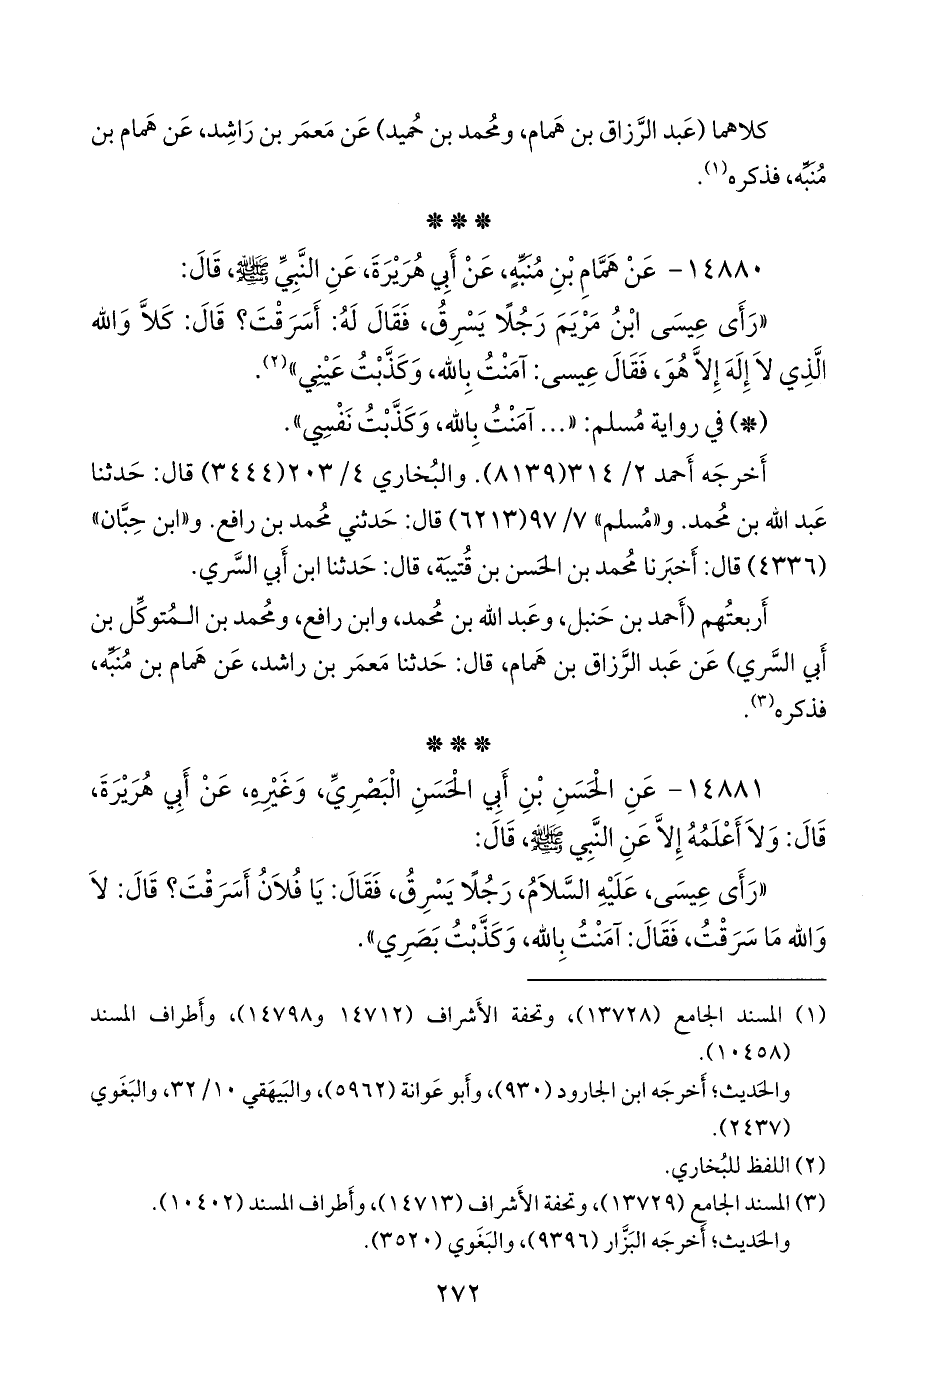 كلاهما (عَبد الرَّزاق بن هَمام، ومُحمد بن حُميد) عَن مَعمَر بن رَاشِد، عَن هَمام بن
مُنَبِّه، فذكره(١).
* * *
١٤٨٨٠- عَنْ هَمَّامِ بْنِ مُنَبِّهٍ، عَنْ أَبِي هُرَيْرَةَ، عَنِ النَّبِيِّ ﷺ، قَالَ:
«رَأَى عِيسَى ابْنُ مَرْيَمَ رَجُلًا يَسْرِقُ، فَقَالَ لَهُ: أَسَرَقْتَ؟ قَالَ: كَلاَّ وَالله
الَّذِي لاَ إِلَهَ إِلاَّ هُوَ، فَقَالَ عِيسى: آمَنْتُ بِالله، وَكَذَّبْتُ عَيْنِي»(٢).
(*) في رواية مُسلم: «... آمَنْتُ بِالله، وَكَذَّبْتُ نَفْسِي».
أَخرجَه أَحمد ٢/ ٣١٤(٨١٣٩). والبُخاري ٤/ ٢٠٣(٣٤٤٤) قال: حَدثنا
عَبد الله بن مُحمد. و«مُسلم» ٧/ ٩٧(٦٢١٣) قال: حَدثني مُحمد بن رافع. و«ابن حِبَّان»
(٤٣٣٦) قال: أَخبَرنا مُحمد بن الحَسن بن قُتيبة، قال: حَدثنا ابن أَبي السَّري.
أَربعتُهم (أَحمد بن حَنبل، وعَبد الله بن مُحمد، وابن رافع، ومُحمد بن الـمُتوكِّل بن
أَبي السَّري) عَن عَبد الرَّزاق بن هَمام، قال: حَدثنا مَعمَر بن راشد، عَن هَمام بن مُنَبِّه،
فذكره(٣).
* * *
١٤٨٨١- عَنِ الْحَسَنِ بْنِ أَبِي الْحَسَنِ الْبَصْرِيِّ، وَغَيْرِهِ، عَنْ أَبِي هُرَيْرَةَ،
قَالَ: وَلاَ أَعْلَمُهُ إِلاَّ عَنِ النَّبِي ﷺ، قَالَ:
«رَأَى عِيسَى، عَلَيْهِ السَّلاَمُ، رَجُلًا يَسْرِقُ، فَقَالَ: يَا فُلاَنُ أَسَرَقْتَ؟ قَالَ: لاَ
وَالله مَا سَرَقْتُ، فَقَالَ: آمَنْتُ بِالله، وَكَذَّبْتُ بَصَرِي».
(١) المسند الجامع (١٣٧٢٨)، وتحفة الأَشراف (١٤٧١٢ و١٤٧٩٨)، وأَطراف المسند
(١٠٤٥٨).
والحَديث؛ أَخرجَه ابن الجارود (٩٣٠)، وأَبو عَوانة (٥٩٦٢)، والبَيهَقي ١٠/ ٣٢، والبَغَوي
(٢٤٣٧).
(٢) اللفظ للبُخاري.
(٣) المسند الجامع (١٣٧٢٩)، وتحفة الأَشراف (١٤٧١٣)، وأَطراف المسند (١٠٤٠٢).
والحَديث؛ أَخرجَه البَزَّار (٩٣٩٦)، والبَغَوي (٣٥٢٠).
٢٧٢